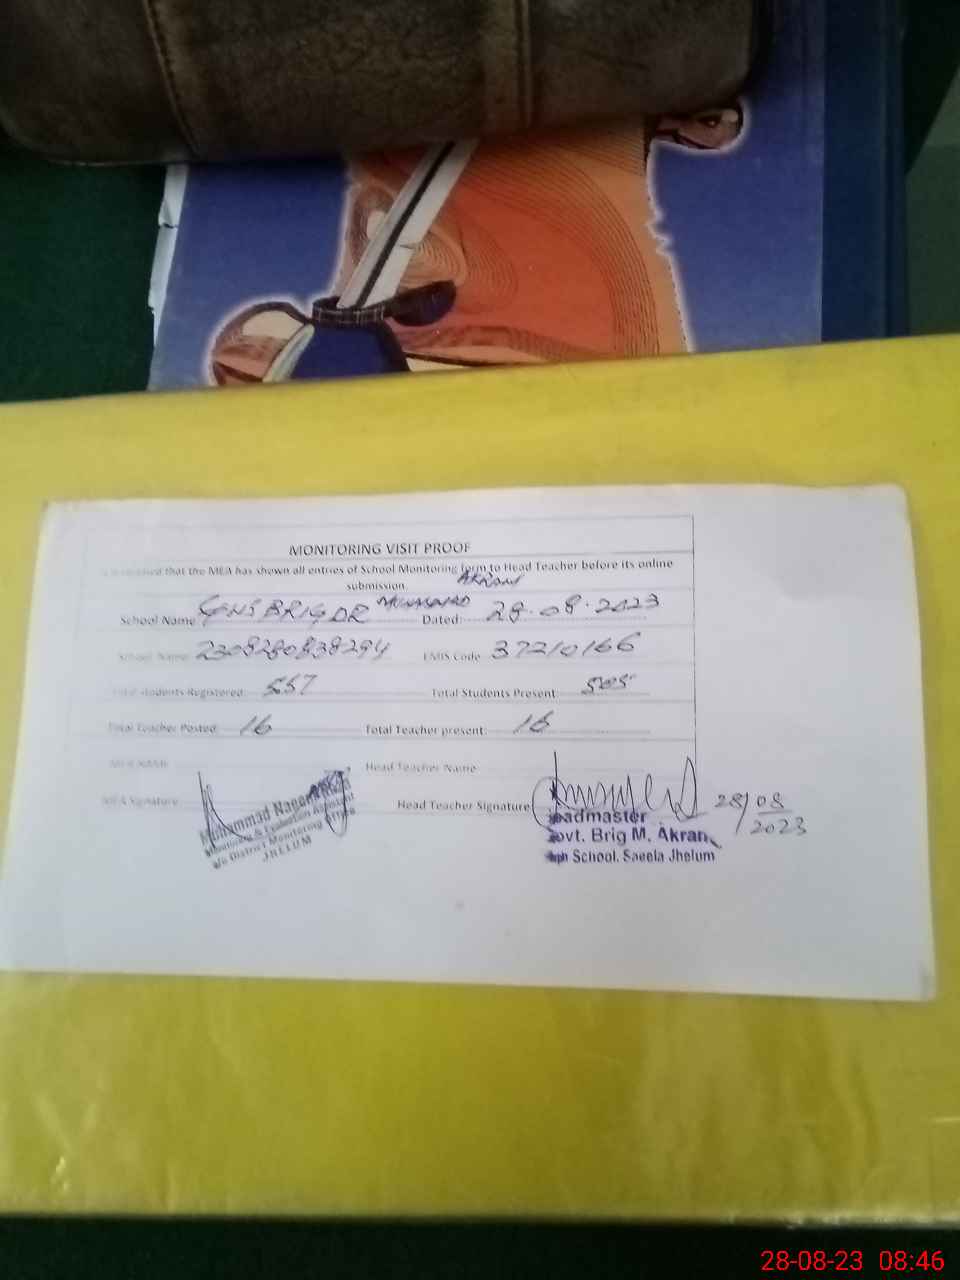 MONITORING VISIT PROOF
that the MEA has shown all entries of School Monitoring form to Head Teacher before its online
submission.
School Name GHS BRIG DR MUHAMMAD AKRAM Dated: 28.08.2023
School Name 2308280838294 EMIS Code 37210166
Total Students Registered: 557 Total Students Present: 505
Total Teacher Posted: 16 Total Teacher present: 16
MEA NAME Head Teacher Name
MEA Signature Head Teacher Signature 28/08/2023
Muhammad
Monitoring & Evaluation Assistant
o/o District Monitoring Office
JHELUM
eadmaster
ovt. Brig M. Akram
School. Saeela Jhelum
28-08-23 08:46